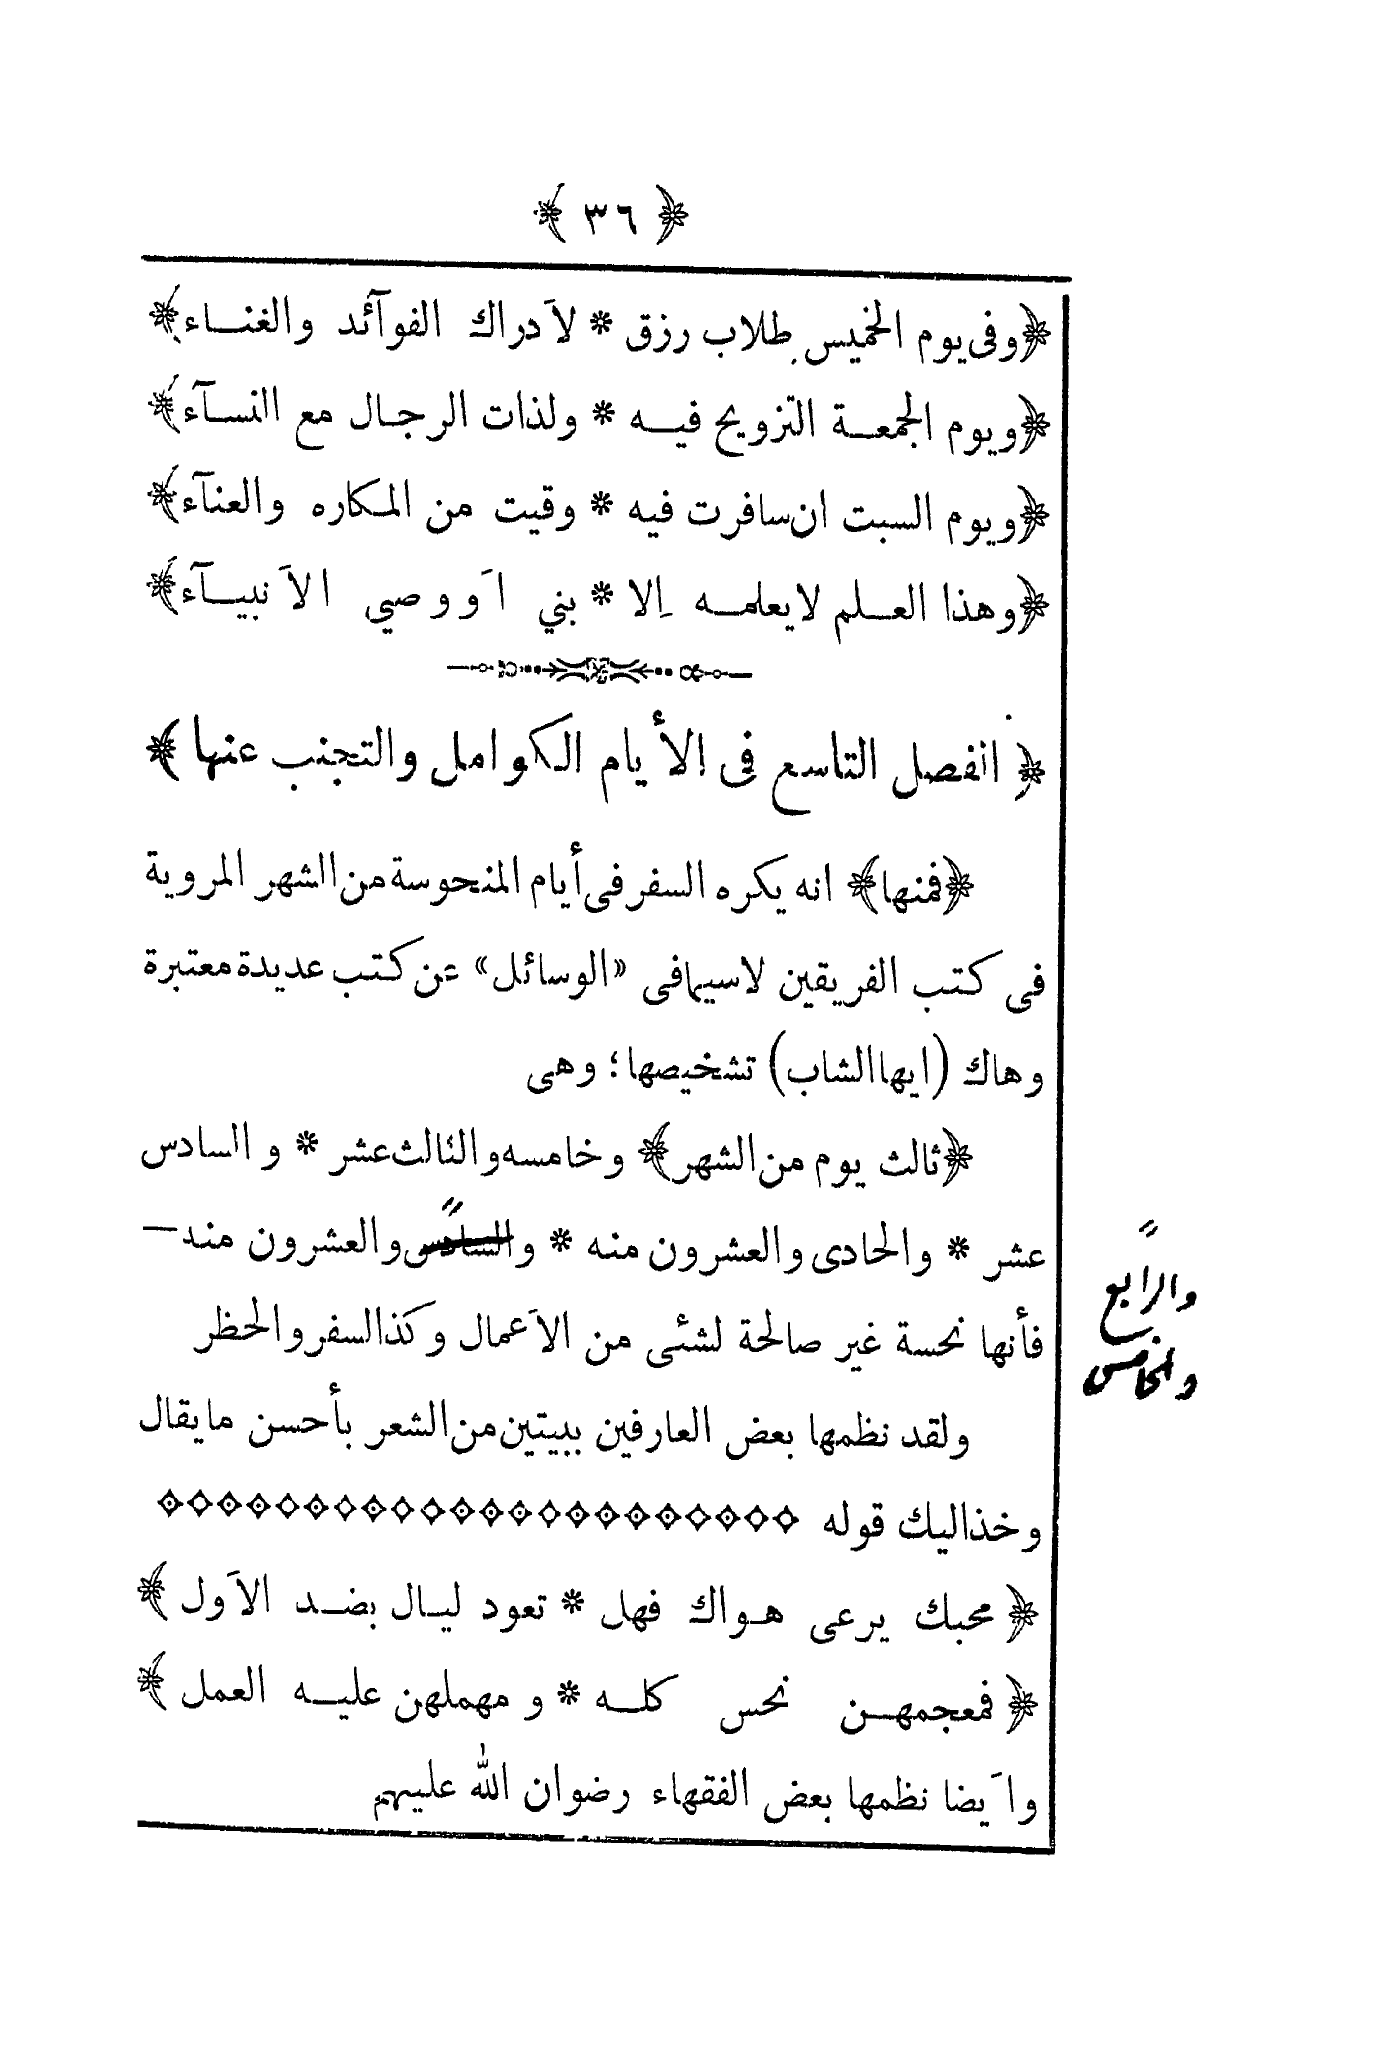 ﴿ ٣٦ ﴾
﴿وفى يوم الخميس طلاب رزق * لاَدراك الفوآئد والغنـاء﴾
﴿ويوم الجمعـة التزويج فيـه * ولذات الرجـال مع النسـآء﴾
﴿ويوم السبت ان سافرت فيه * وقيت من المـكاره والعنآء﴾
﴿وهذا العـلم لايعلمـه إلا * بني اَو وصي الاَنبيـآء﴾
﴿ الفصل التاسع فى الأيام الكوامل والتجنب عنها ﴾
﴿فمنها﴾ انه يكره السفر فى أيام المنحوسة من الشهر المروية
فى كتب الفريقين لاسيمافى «الوسائل» عن كتب عديدة معتبرة
وهاك (ايها الشاب) تشخيصها؛ وهى
﴿ثالث يوم من الشهر﴾ وخامسه والثالث عشر * والسادس
عشر * والحادى والعشرون منه * والسادس والعشرون منه —
والرابع
والخامس
فأنها نحسة غير صالحة لشئى من الاَعمال وكذا السفر والحظر
ولقد نظمها بعض العارفين ببيتين من الشعر بأحسن مايقال
وخذ اليك قوله
﴿ محبك يرعى هـواك فهل * تعود ليـال بضـد الاَول ﴾
﴿ فمعجمهـن نحس كلـه * ومهملهن عليـه العمل ﴾
واَيضا نظمها بعض الفقهاء رضوان الله عليهم